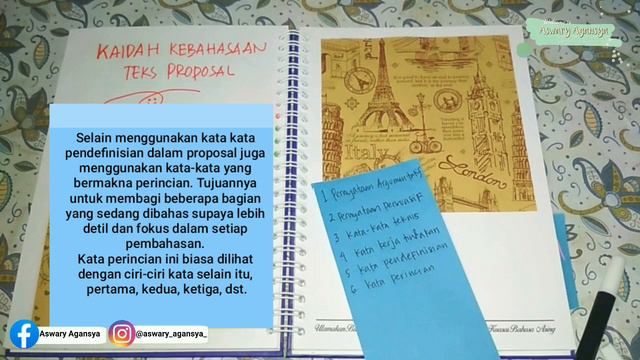 KAIDAH KEBAHASAAN
TEKS PROPOSAL
Selain menggunakan kata kata
pendefinisian dalam proposal juga
menggunakan kata-kata yang
bermakna perincian. Tujuannya
untuk membagi beberapa bagian
yang sedang dibahas supaya lebih
detil dan fokus dalam setiap
pembahasan.
Kata perincian ini biasa dilihat
dengan ciri-ciri kata selain itu,
pertama, kedua, ketiga, dst.
Italy
London
1 Pernyataan Argumentatif
2 Pernyataan Persuasif
3 Kata-kata teknis
4 Kata kerja tindakan
5 Kata pendefinisian
6 Kata perincian
Utamakan
Kuasai Bahasa Asing
Aswary Agansya
Aswary Agansya
@aswary_agansya_